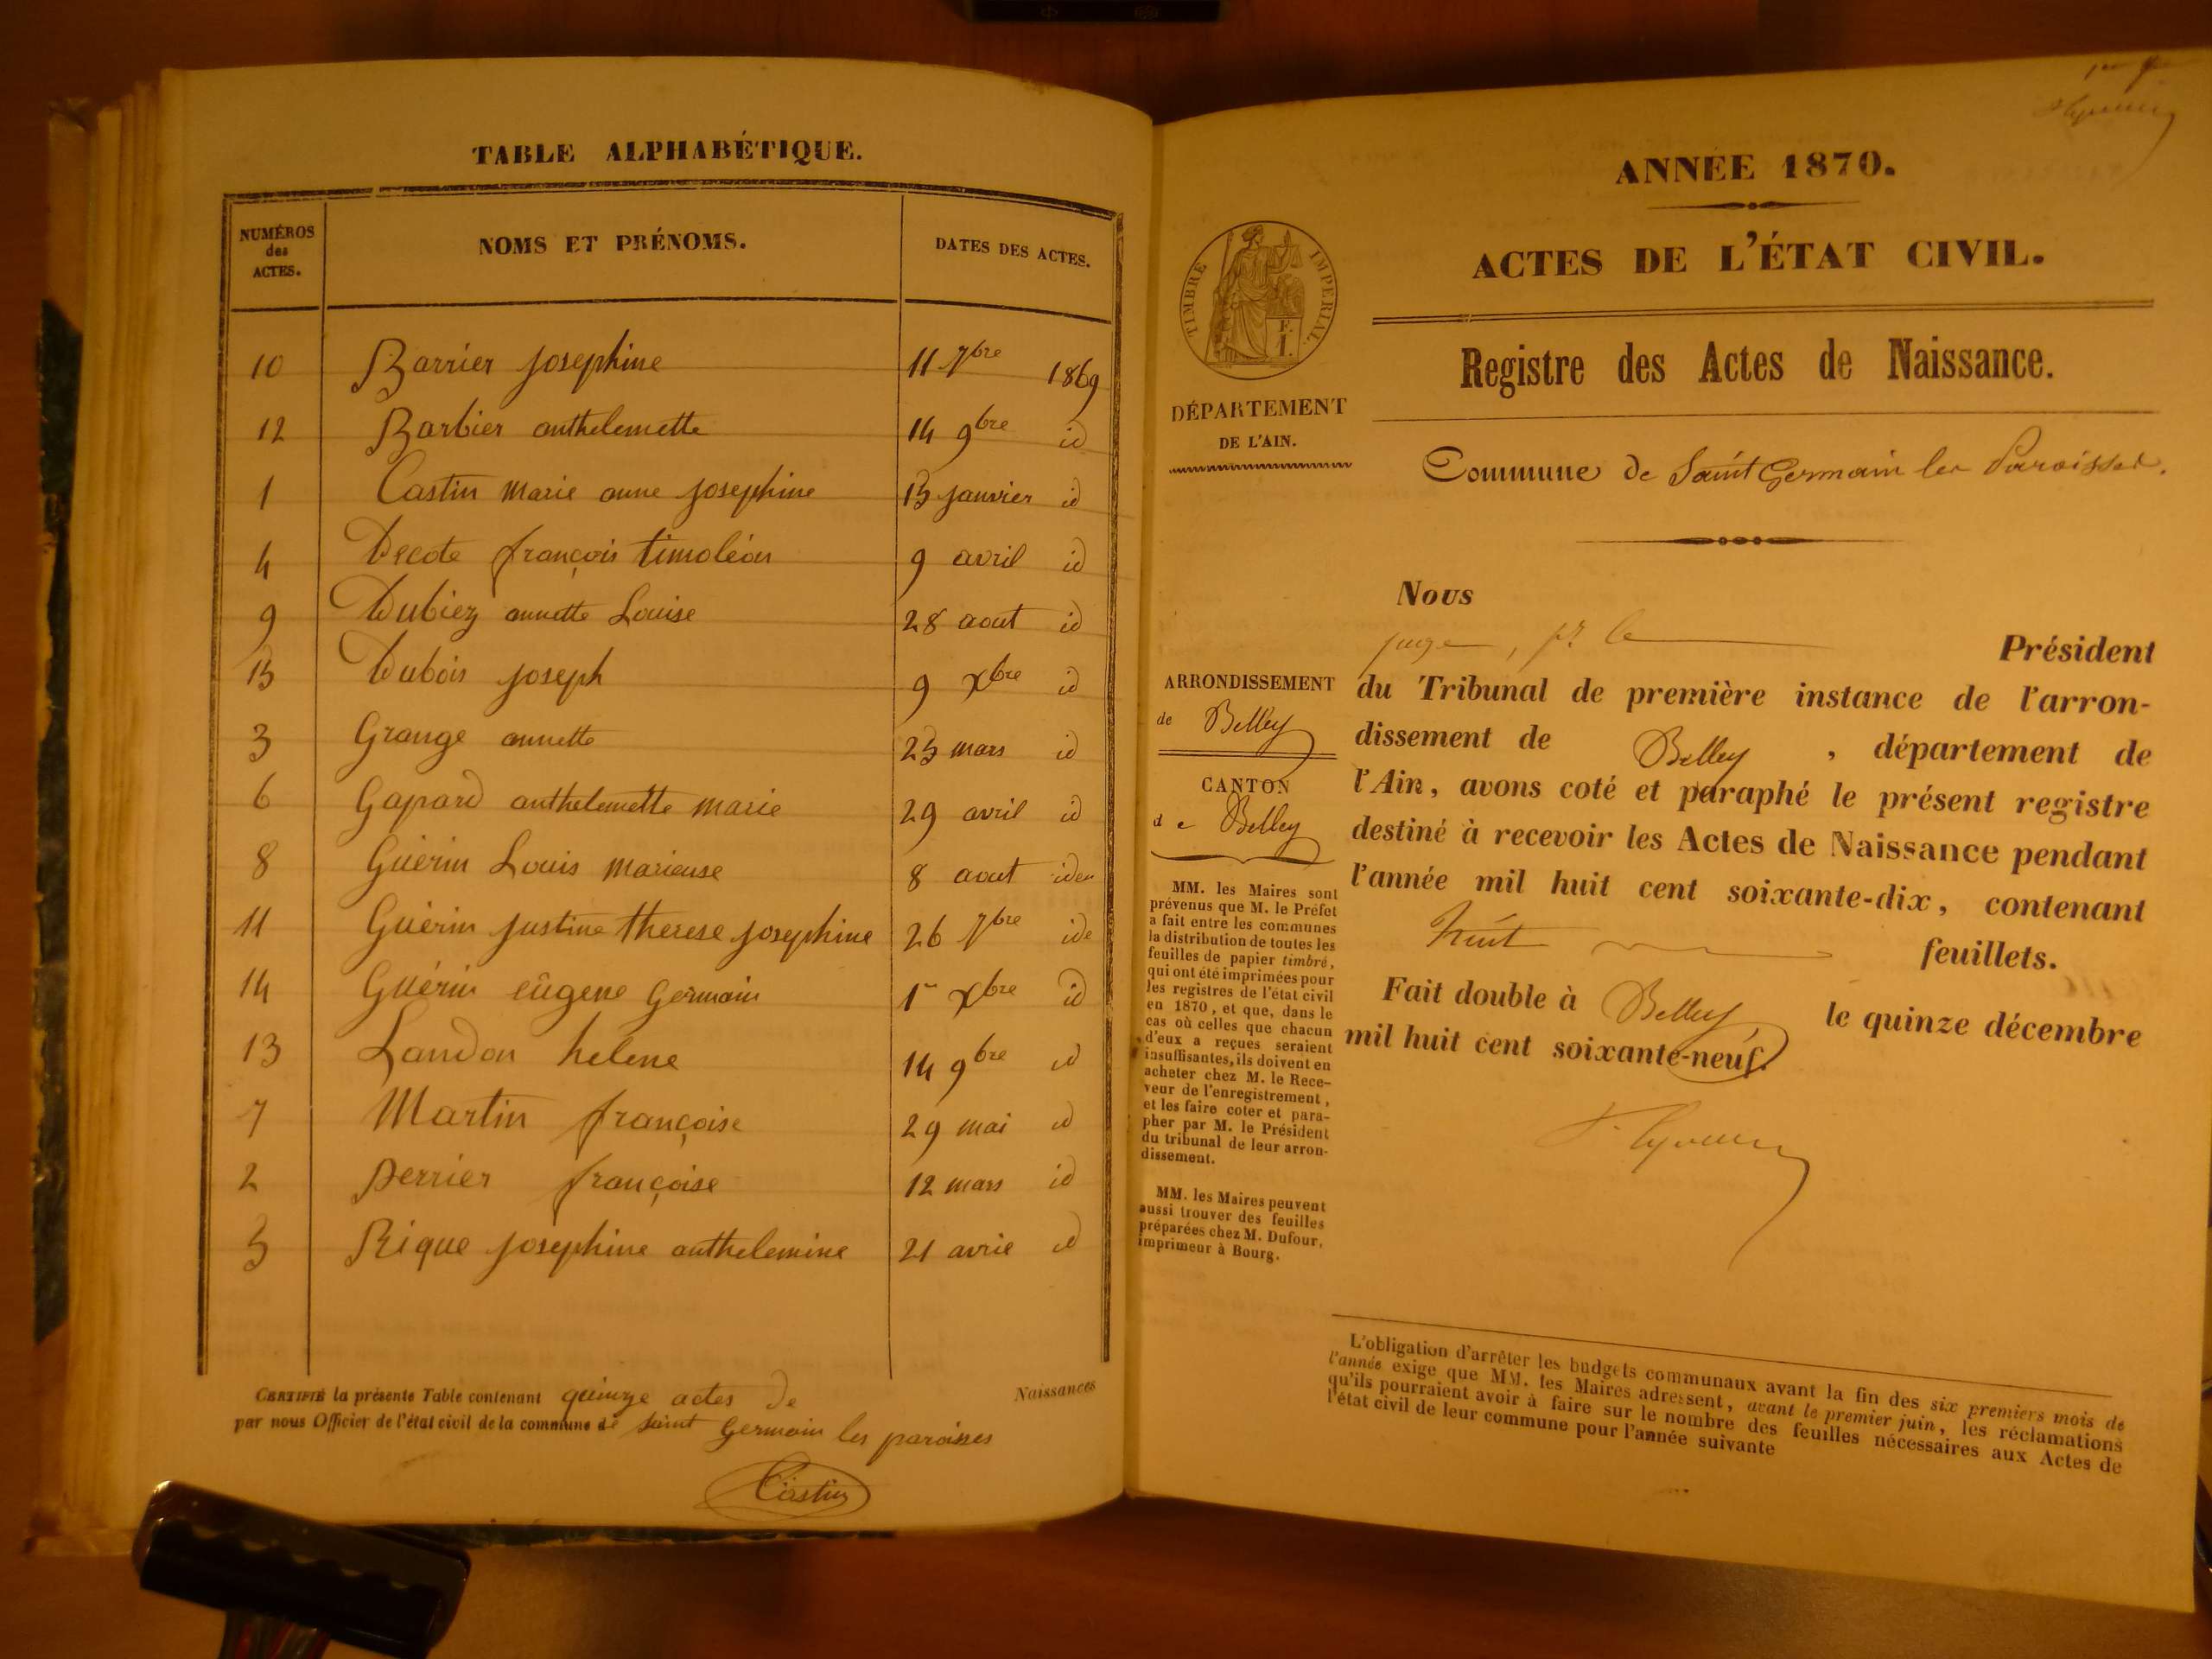 TABLE ALPHABÉTIQUE.
NUMÉROS des ACTES. NOMS ET PRÉNOMS. DATES DES ACTES.
10 Barrier josephine 11 7bre 1869
12 Barbier anthelemette 14 9bre id
1 Castin marie anne josephine 15 janvier id
4 Decote françois timoléon 9 avril id
9 Dubiez annette Louise 28 aout id
15 Dubois joseph 9 Xbre id
3 Grange annette 25 mars id
6 Gapard anthelemette marie 29 avril id
8 Guérin Louis marieuse 8 aout iden
11 Guérin justine therese josephine 26 7bre ide
14 Guérin eûgene Germain 1er Xbre id
13 Landon hélene 14 9bre id
7 Martin françoise 29 mai id
2 Perrier françoise 12 mars id
5 Rique josephine anthelemine 21 avril id
CERTIFIÉ la présente Table contenant quinze actes de Naissances
par nous Officier de l'état civil de la commune de saint Germain les paroisses
Castin
ANNÉE 1870.
ACTES DE L'ÉTAT CIVIL.
TIMBRE IMPERIAL.
F.
1.
Registre des Actes de Naissance.
DÉPARTEMENT
DE L'AIN.
Commune de Saint Germain les Paroisses.
ARRONDISSEMENT
de Belley
CANTON
de Belley
MM. les Maires sont
prévenus que M. le Préfet
a fait entre les communes
la distribution de toutes les
feuilles de papier timbré,
qui ont été imprimées pour
les registres de l'état civil
en 1870, et que, dans le
cas où celles que chacun
d'eux a reçues seraient
insuffisantes, ils doivent en
acheter chez M. le Rece-
veur de l'enregistrement,
et les faire coter et para-
pher par M. le Président
du tribunal de leur arron-
dissement.
MM. les Maires peuvent
aussi trouver des feuilles
préparées chez M. Dufour,
imprimeur à Bourg.
Nous
juge, pr le Président
du Tribunal de première instance de l'arron-
dissement de Belley, département de
l'Ain, avons coté et paraphé le présent registre
destiné à recevoir les Actes de Naissance pendant
l'année mil huit cent soixante-dix, contenant
huit feuillets.
Fait double à Belley le quinze décembre
mil huit cent soixante-neuf.
L'obligation d'arrêter les budgets communaux avant la fin des six premiers mois de
l'année exige que MM. les Maires adressent, avant le premier juin, les réclamations
qu'ils pourraient avoir à faire sur le nombre des feuilles nécessaires aux Actes de
l'état civil de leur commune pour l'année suivante